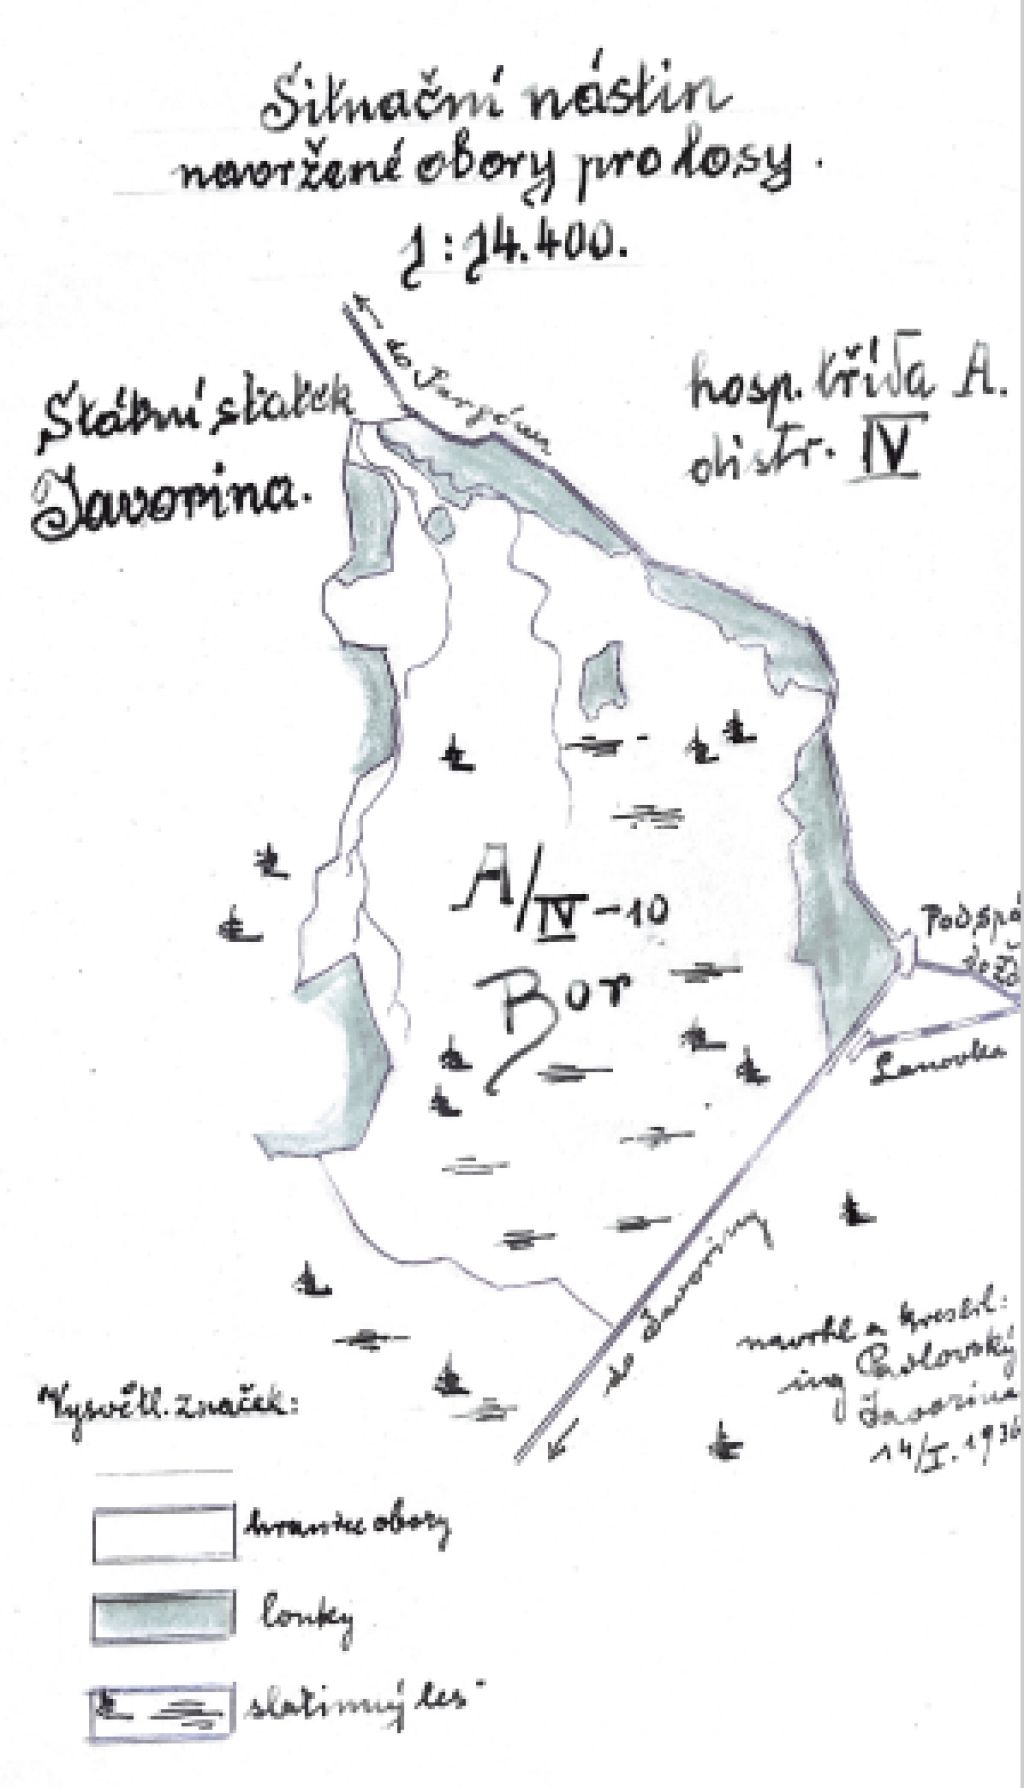 Situační nástin
navržené obory pro losy.
1:14.400.
Státní statek
Javorina.
hosp. třída A.
distr. IV
do
A/IV-10
Bor
Podspá
do Žd
Lanovka
do Javoriny
navrhl a kreslil:
ing Pavlovský
Javorina
14/I. 1936
Vysvětl. značek:
hranice obory
louky
slatinný les